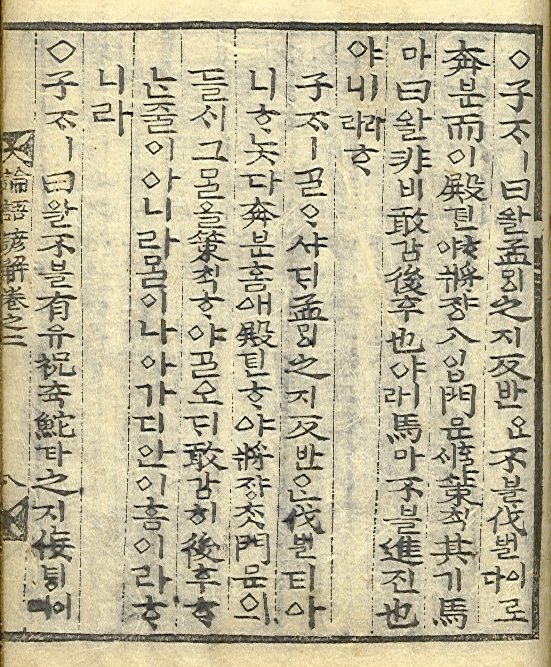 ○子ᄌᆞㅣ曰왈孟ᄆᆡᆼ之지反반ᄋᆞᆫ不블伐벌이로다
奔분而이殿뎐ᄒᆞ야將쟝入입門문ᄒᆞᆯᄉᆡ策ᄎᆡᆨ其기馬
마曰왈非비敢감後후也야ㅣ라馬마不블進진也
야ㅣ니라ᄒᆞ
子ᄌᆞㅣᄀᆞᆯᄋᆞ샤ᄃᆡ孟ᄆᆡᆼ之지反반은伐벌티아
니ᄒᆞ놋다奔분홈애殿뎐ᄒᆞ야將쟝ᄎᆞᆺ門문의
들ᄉᆡ그ᄆᆞᆯ을策ᄎᆡᆨᄒᆞ야ᄀᆞᆯ오ᄃᆡ敢감히後후ᄒᆞ
ᄂᆞᆫ줄이아니라ᄆᆞᆯ이나아가디안이홈이라ᄒᆞ
니라
○子ᄌᆞㅣ曰왈不블有유祝츅鮀타之지侫
論語諺解卷之二 八